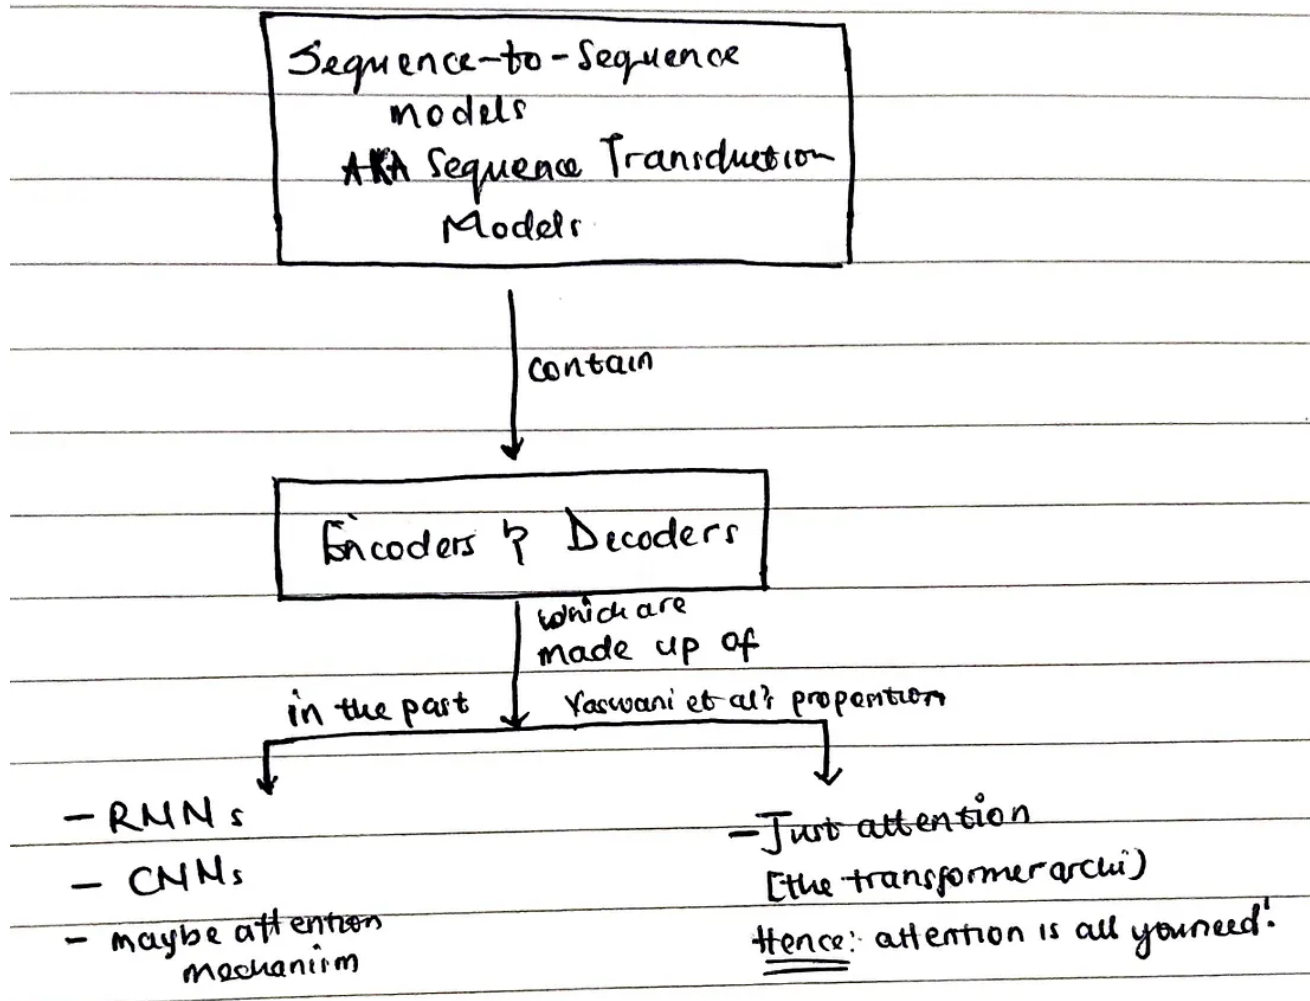 Sequence-to-Sequence
models
AKA Sequence Transduction
Models
contain
Encoders & Decoders
which are
made up of
in the past
Vaswani et al's proposition
- RNNs
- CNNs
- maybe attention
mechanism
- Just attention
(the transformer archi)
Hence: attention is all you need!